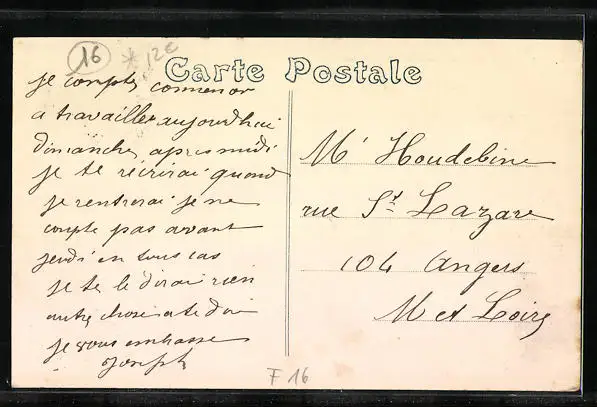 16 * 12€
Carte Postale
je compte commencer
a travailler aujourd'hui
dimanche apres midi
je te reirirai quand
je rentrerai je ne
compte pas avant
jeudi en tous cas
je te le dirai rien
autre chose a te dire
je vous embrasse
Joseph
Mr Houdebine
rue St Lazare
104 Angers
M et Loire
F 16